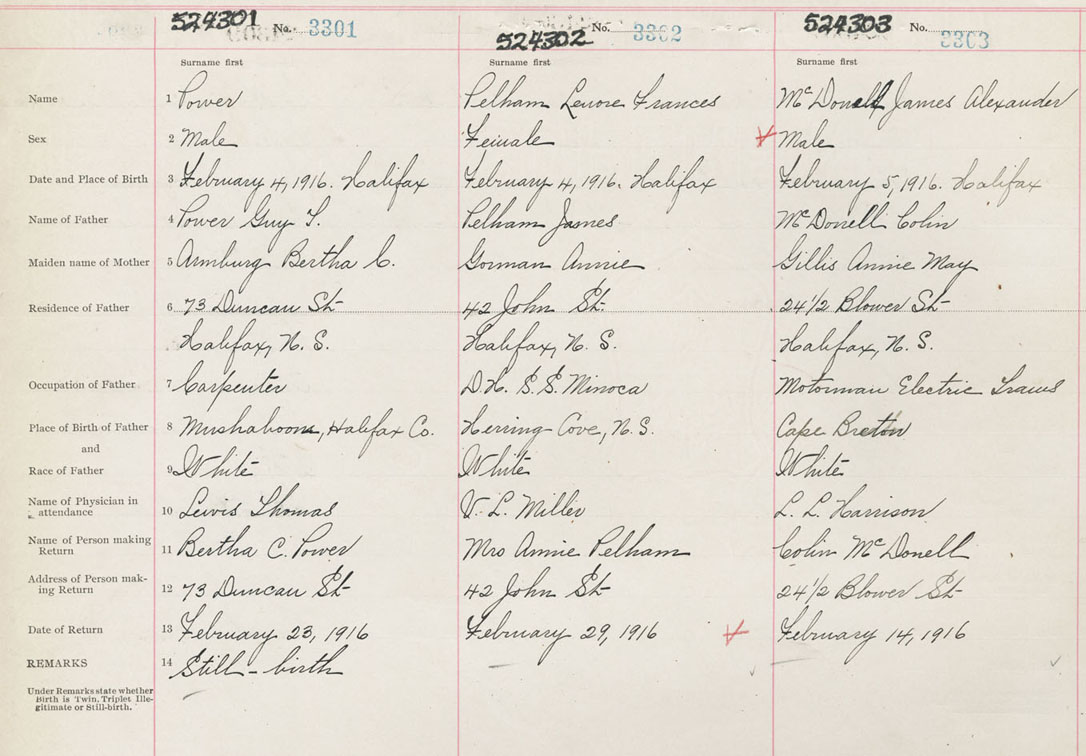 524301 No. 3301 524302 No. 3302 524303 No. 3303
Surname first Surname first Surname first
Name 1 Power Pelham Lenore Frances McDonell James Alexander
Sex 2 Male Female Male
Date and Place of Birth 3 February 4, 1916. Halifax February 4, 1916. Halifax February 5, 1916. Halifax
Name of Father 4 Power Guy T. Pelham James McDonell Colin
Maiden name of Mother 5 Armburg Bertha C. Gorman Annie Gillis Annie May
Residence of Father 6 73 Duncan St 42 John St. 24 1/2 Blower St
Halifax, N. S. Halifax, N. S. Halifax, N. S.
Occupation of Father 7 Carpenter D.H. S. S. Minoca Motorman Electric Trams
Place of Birth of Father 8 Mushaboom, Halifax Co. Herring Cove, N. S. Cape Breton
and
Race of Father 9 White White White
Name of Physician in
attendance 10 Lewis Thomas V. L. Miller L. L. Harrison
Name of Person making
Return 11 Bertha C. Power Mrs Annie Pelham Colin McDonell
Address of Person mak-
ing Return 12 73 Duncan St 42 John St 24 1/2 Blower St
Date of Return 13 February 23, 1916 February 29, 1916 February 14, 1916
REMARKS 14 Still-birth
Under Remarks state whether
Birth is Twin, Triplet Ille-
gitimate or Still-birth.